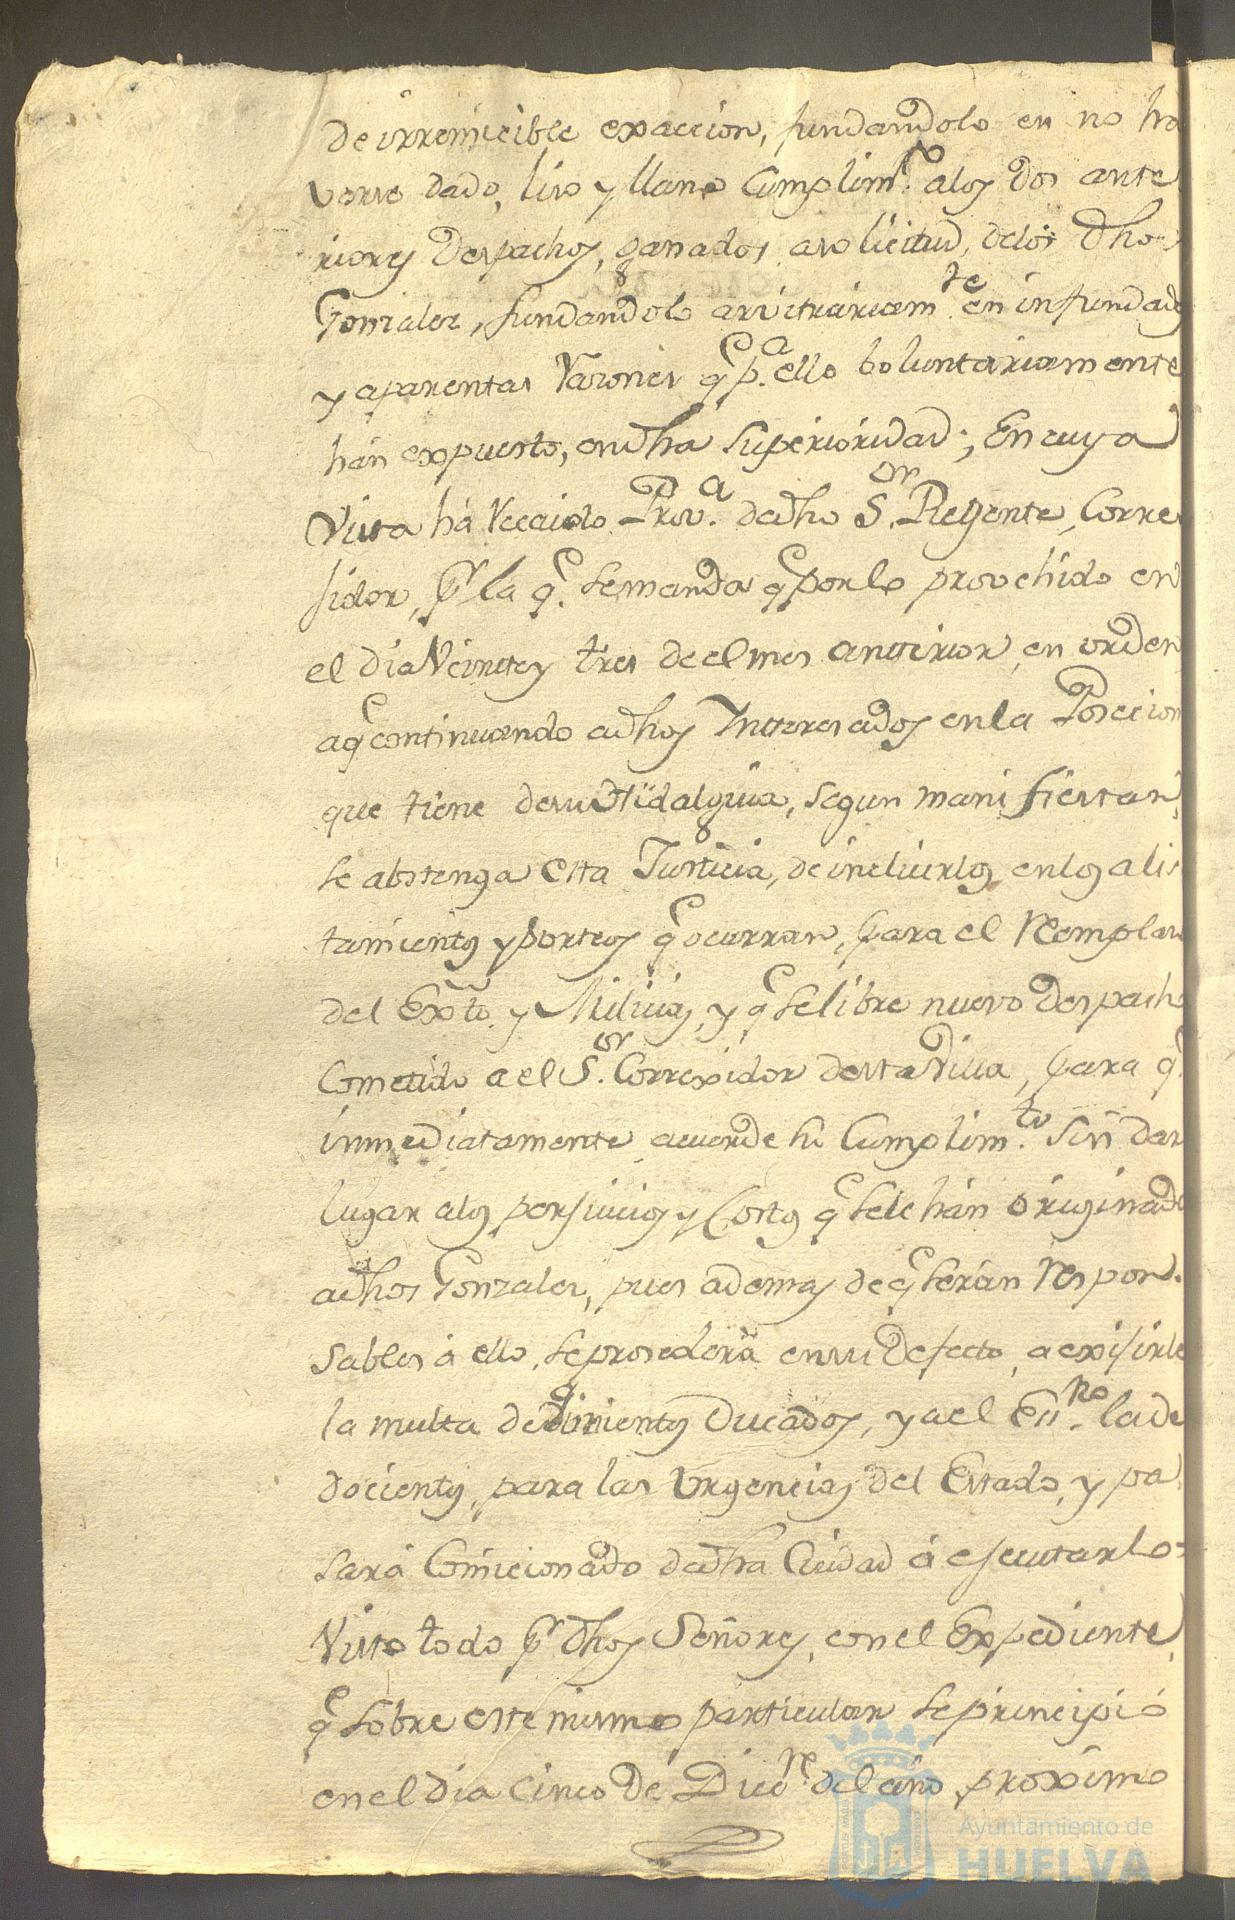 de irremicible exaccion, fundandolo en no ha
verse dado, liso y llano Cumplim.to alos dos ante
riores Despachos, ganados a solicitud, delos dhos
Gonzalez, fundandolo arvitrariam.te en infundadas
y aparentes Razones q p.a ello boluntariamente
hán expuesto, en dha Superioridad; En cuya
Vista há Recaido Prov.a de dho S.or Regente, Corre
sidor, pr la q. se manda q por lo provehido en
el dia Veinte y tres de el mes anterior, en orden
a q continuando a dhos Ynteresados en la Posecion
que tiene de su Hidalguia, segun manifiestan,
se abstenga esta Justicia, de incluirlos en los alis
tamientos y sorteos q ocurran, para el Reemplazo
del Exto. y Milicias, y q se libre nuevo Despacho
Cometido a el S.or Correxidor de esta Villa, para q.
inmediatamente acuerde su Cumplim.to sin dar
lugar alos perjuicios y Costos q se le hán originado
a dhos Gonzalez, pues ademas de q serán Respon-
sables á ello, se prosederá en su defecto, a exijirle
la multa de Ducados, y a el Ess.no la de
docientos, para las Urgencias del Estado, y pa
sará Comicionado de dha Ciudad á ejecutarlo=
Visto todo pr dhos Señores, con el Expediente,
q sobre este mismo particular se principió
en el dia Cinco de Dic.re del año proximo
Ayuntamiento de
HUELVA